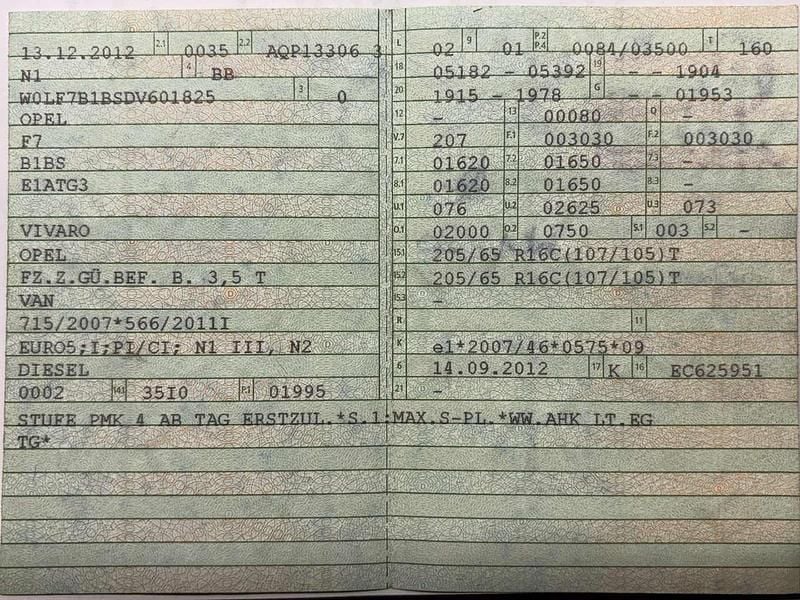 13.12.2012 2.1 0035 2.2 AQP13306 3 L 02 9 01 P.2 P.4 0084/03500 T 160
N1 4 BB 18 05182 - 05392 19 - - 1904
W0LF7B1BSDV601825 3 0 20 1915 - 1978 G - - 01953
OPEL 12 - 13 00080 Q -
F7 V.7 207 F.1 003030 F.2 003030
B1BS 7.1 01620 7.2 01650 7.3 -
E1ATG3 8.1 01620 8.2 01650 8.3 -
U.1 076 U.2 02625 U.3 073
VIVARO O.1 02000 O.2 0750 S.1 003 S.2 -
OPEL 15.1 205/65 R16C(107/105)T
FZ.Z.GÜ.BEF. B. 3,5 T 15.2 205/65 R16C(107/105)T
VAN 15.3 -
715/2007*566/2011I R 11
EURO5;I;PI/CI; N1 III, N2 K e1*2007/46*0575*09
DIESEL 6 14.09.2012 17 K 16 EC625951
0002 14.1 35I0 P.1 01995 21 -
STUFE PMK 4 AB TAG ERSTZUL.*S.1:MAX.S-PL.*WW.AHK LT.EG
TG*